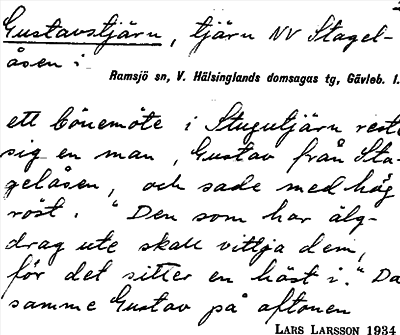 Gustavstjärn, tjärn NV Stagel-
åsen i
Ramsjö sn, V. Hälsinglands domsagas tg, Gävleb. l.
ett bönemöte i Stugutjärn reste
sig en man, Gustav från Sta-
gelåsen, och sade med hög
röst: "Den som har älg-
drag ute skall vittja dem,
för det sitter en häst i." Da
samme Gustav på aftonen
LARS LARSSON 1934